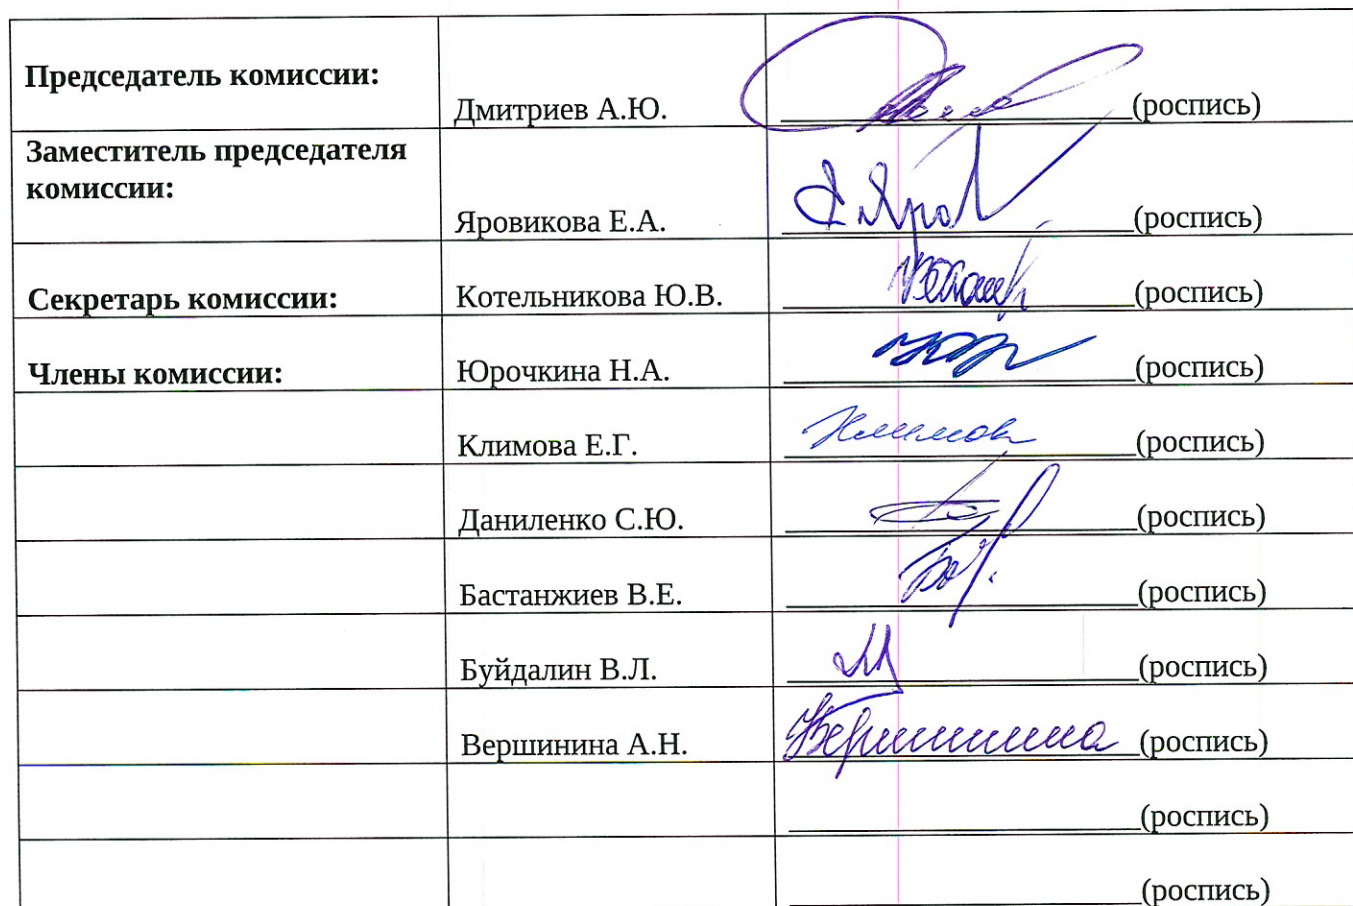 Председатель комиссии:
Дмитриев А.Ю. (роспись)
Заместитель председателя
комиссии:
Яровикова Е.А. (роспись)
Секретарь комиссии: Котельникова Ю.В. (роспись)
Члены комиссии: Юрочкина Н.А. (роспись)
Климова Е.Г. Климова (роспись)
Даниленко С.Ю. (роспись)
Бастанжиев В.Е. (роспись)
Буйдалин В.Л. (роспись)
Вершинина А.Н. Вершинина (роспись)
(роспись)
(роспись)